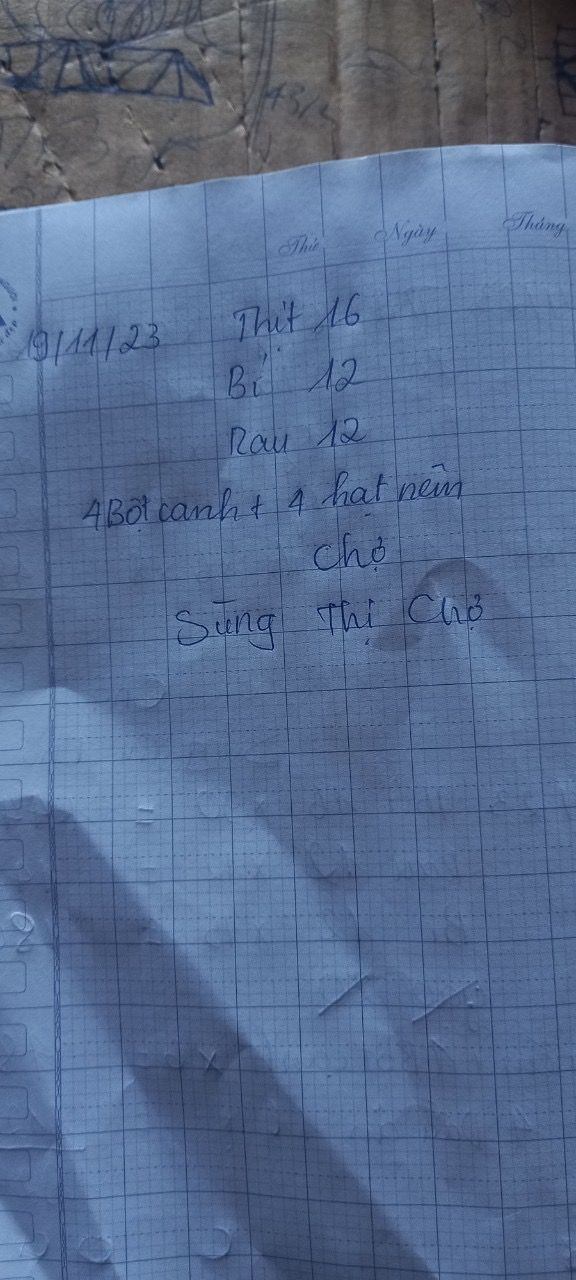 Thứ Ngày Tháng
19/11/23 Thịt 16
Bí 12
Rau 12
4 Bột canh + 4 hạt nêm
Chợ
Sùng Thị Chợ